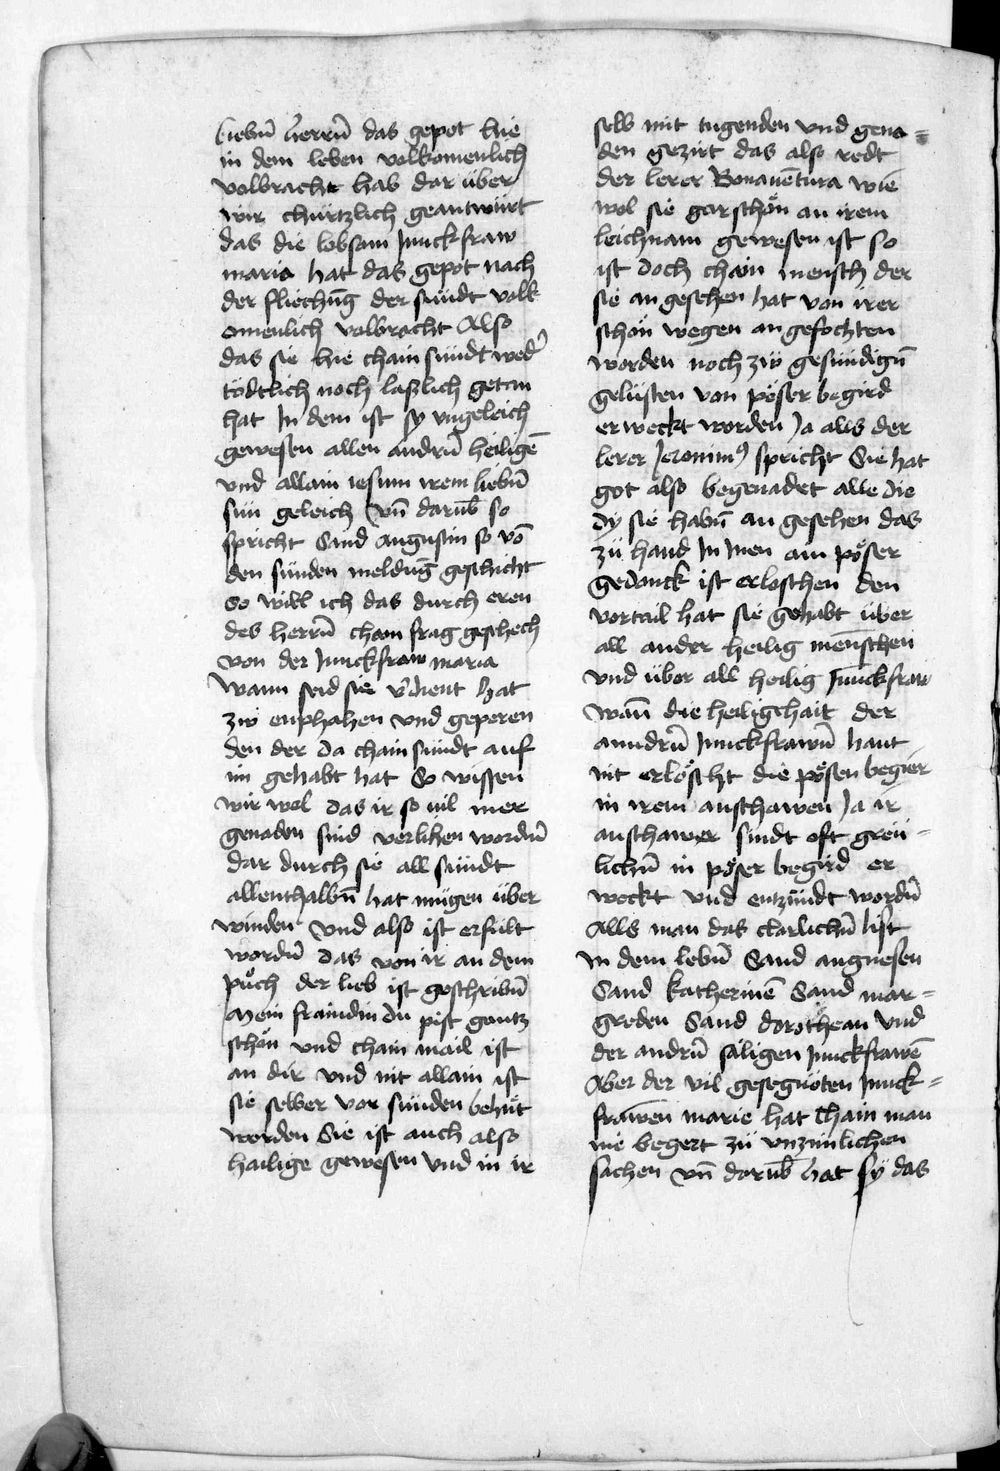 liebn̄ herrn̄ das gepot hie
in dem leben volkomenlich
volbracht hab dar über
wir chürtzlich geantwürt
das die lobsam Junckfraw
maria hat das gepot nach
der fliechūg der sündt volk
omenlich volbracht Also
das sie hie chain sündt wed̉
tödtlich noch laßlich getan
hat In dem ist sy vngeleich
gewesen allen andrn̄ heiligē
vnd allain iesum irem liebn̄
sun geleich vn̄ darūb so
spricht Sand augustin so vō
den sünden meldūg geschicht
so will ich das durch eren
des herrn̄ chain frag geschech
von der Junckfraw maria
wann seid sie v̉dient hat
zw enphahen vnd geperen
den der da chain sündt auf
im gehabt hat So wissen
wir wol das ir so vil mer
genaden sind verlihen wordn̄
dar durch sie all sündt
allenthalbn̄ hat mügen über
winden vnd also ist erfült
wordn̄ das von ir an dem
půch der lieb ist geschribn̄
Mein fraindin du pist gantz
schön vnd chain mail ist
an dir vnd nit allain ist
sie selber vor sünden behüt
worden Sie ist auch also
hailige gewesen vnd in ir
selb mit tugenden vnd gena=
den gezirt das also redt
der lerer Bonauētura wie
wol sie gar schön an irem
leichnam gewesen ist so
ist doch chain mensch der
sie angesehen hat von irer
schön wegen angefochten
worden noch zw gesündign̄
gelüsten von pöser begird
erweckt worden Ja alls der
lerer Jeronimꝰ spricht Sie hat
got also begenadet alle die
dy sie habn̄ an gesehen das
zü hand In Inen ain pöser
gedanck ist erloschen den
vortail hat sie gehabt über
all ander heilig mēnschen
vnd über all heilig Junckfraw
wan̄ die heiligchait der
anndrn̄ Junckfrawn̄ hant
nit erlöscht die pösen begier
in irem anschawen Ja ir
anschawer sindt oft greü=
lichn̄ in pöser begird er
weckt vnd entzündt wordn̄
Alls man das clarlichn̄ list
in dem lebn̄ Sand angnesen
Sand katherinē Sand mar=
greden Sand dorothean vnd
der andrn̄ säligen Junckfrawē
Aber der vil gesegnöten Junck=
frawen marie hat chain man
nie begert zü vnzimlichen
sachen vn̄ darūb hat sÿ das